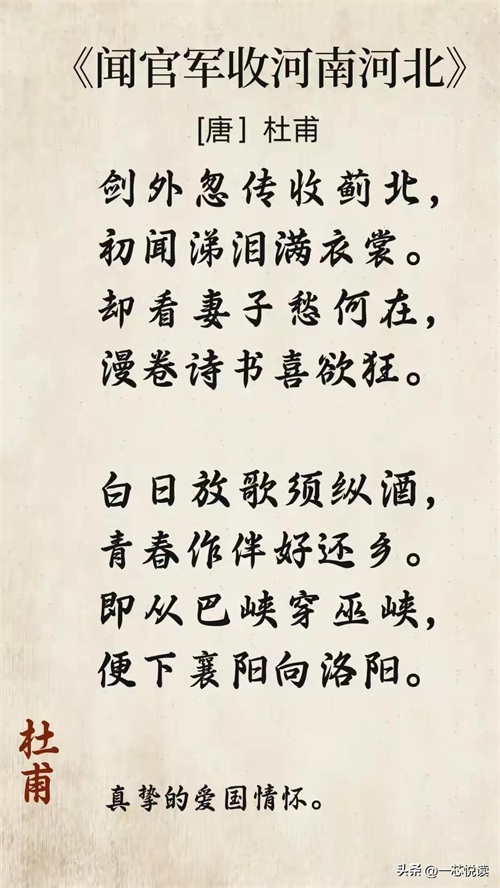 《闻官军收河南河北》
[唐］杜甫
剑外忽传收蓟北，
初闻涕泪满衣裳。
却看妻子愁何在，
漫卷诗书喜欲狂。
白日放歌须纵酒，
青春作伴好还乡。
即从巴峡穿巫峡，
便下襄阳向洛阳。
杜甫
真挚的爱国情怀。
头条 @一芯悦读